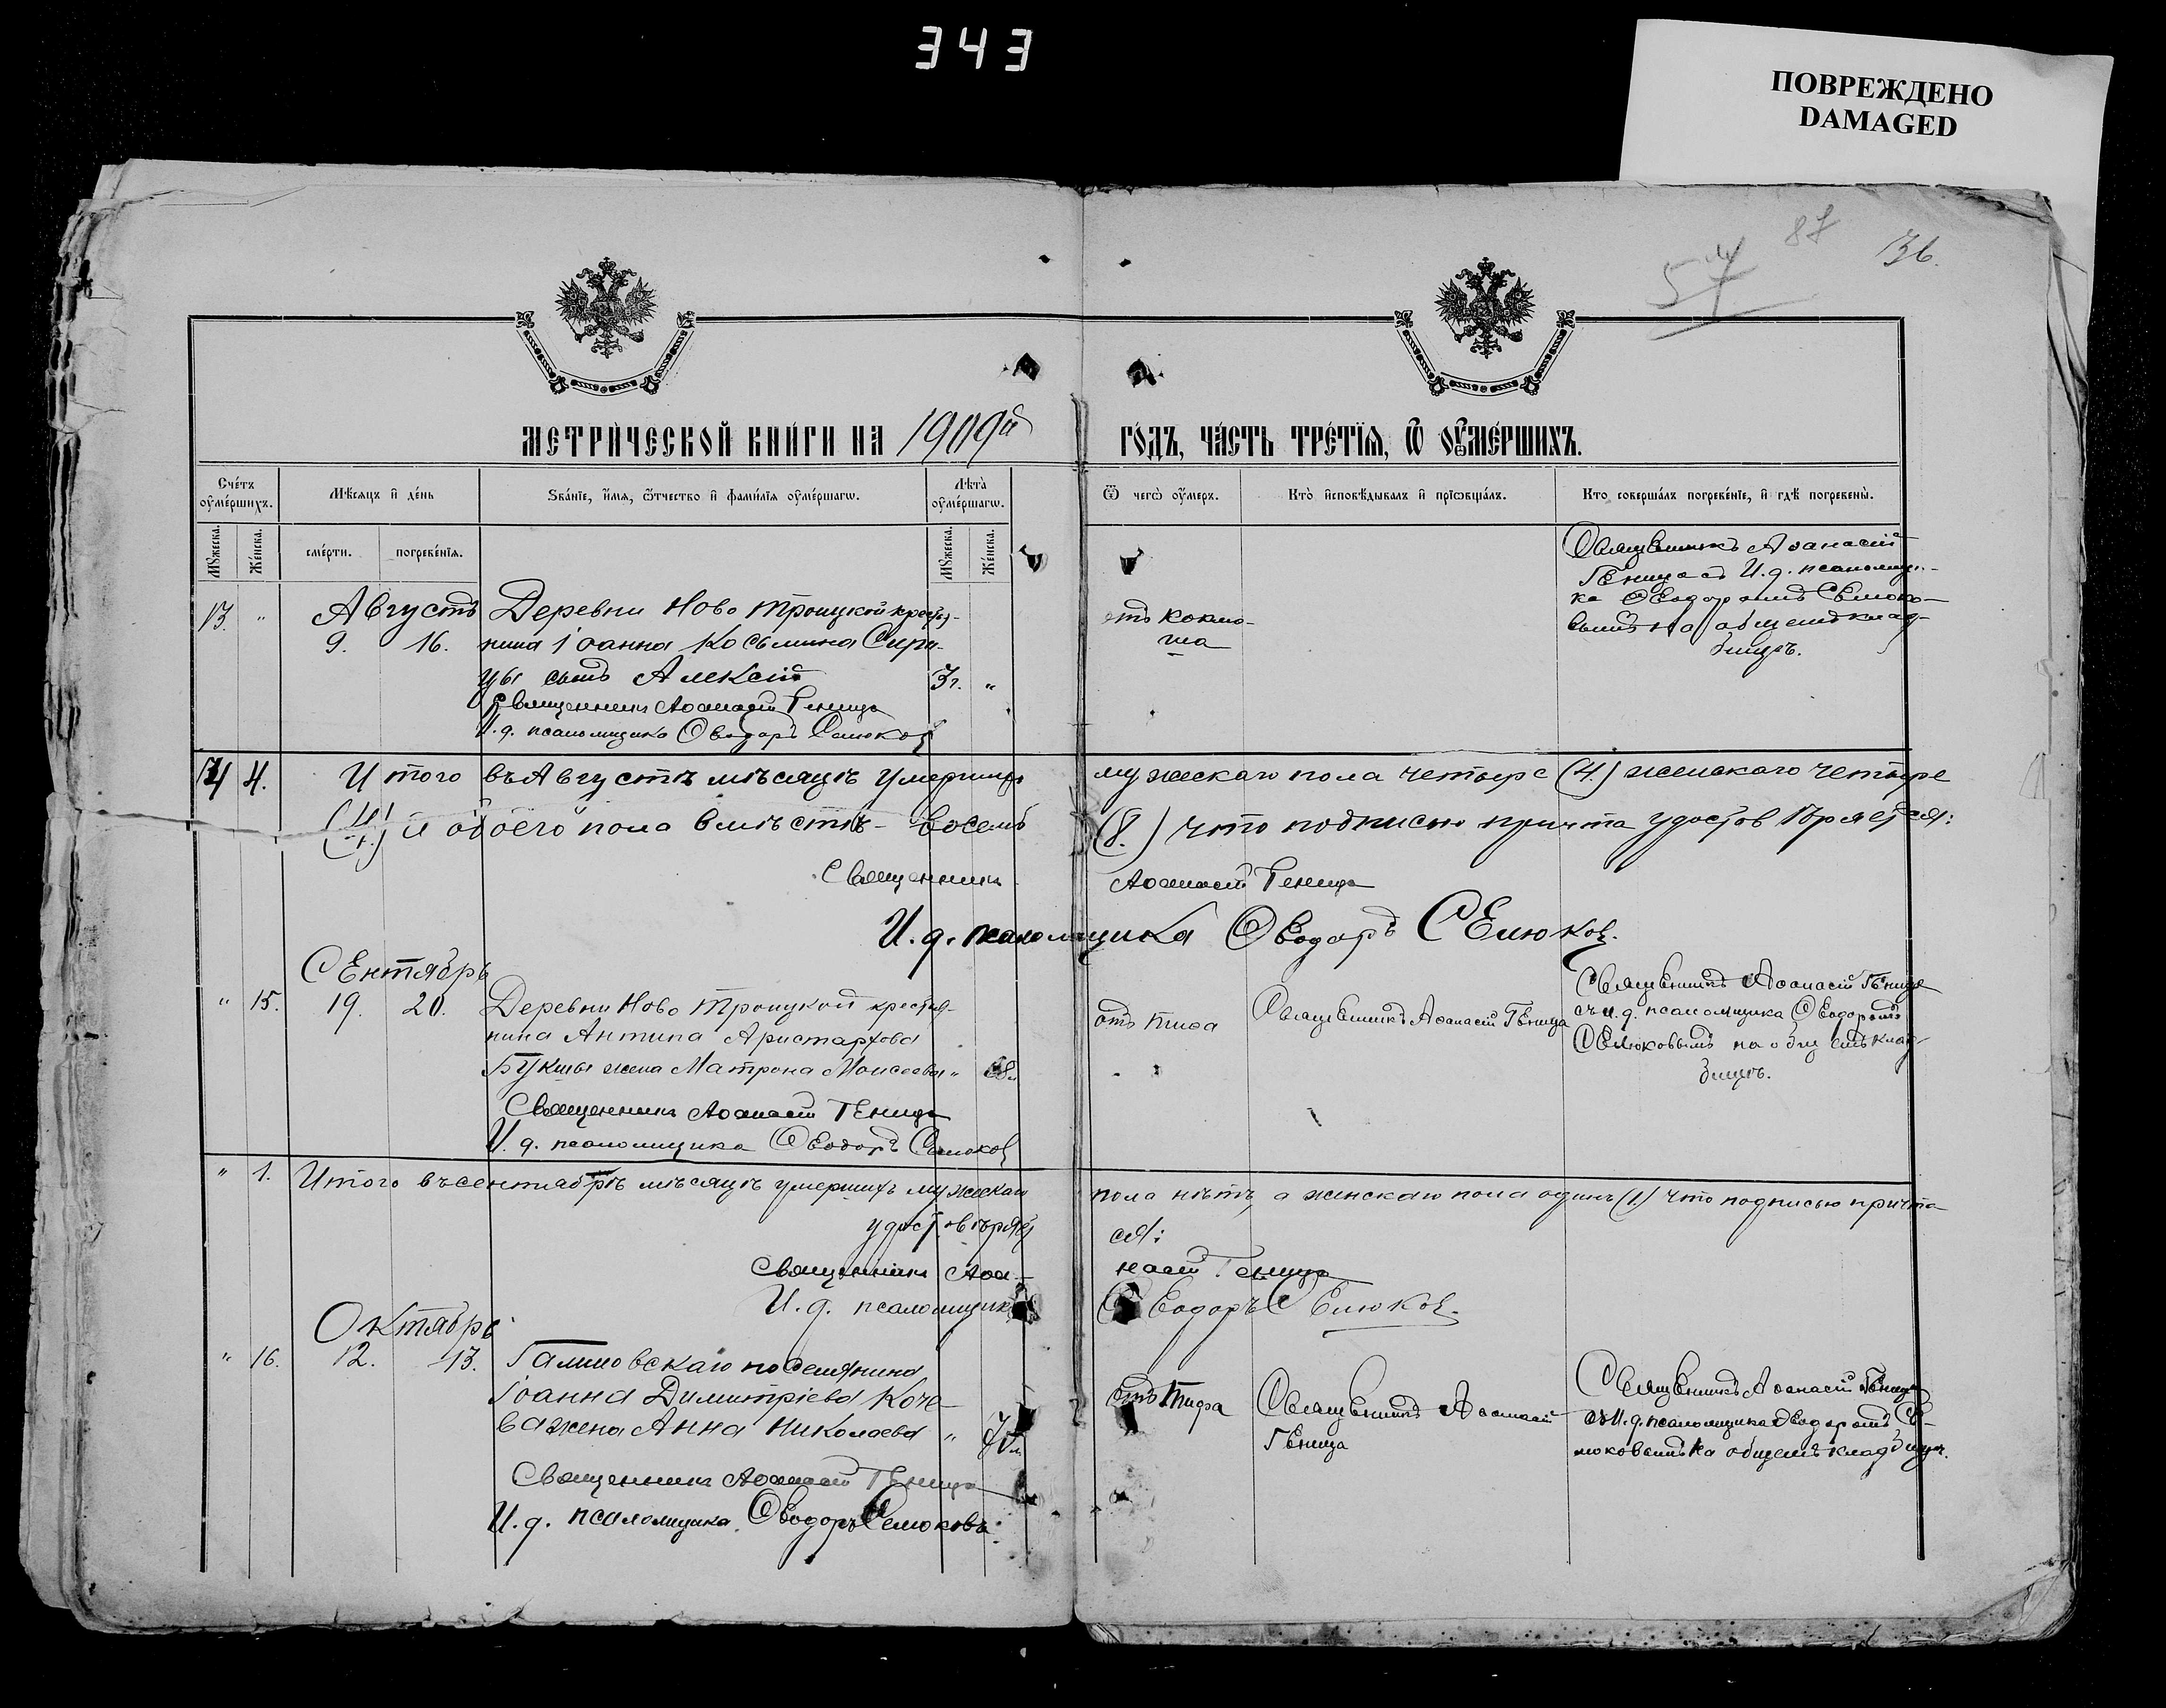 343
ПОВРЕЖДЕНО
DAMAGED
87
57
136.
МЕТРИЧЕСКОЙ КНИГИ НА 1909й ГОДЪ, ЧАСТЬ ТРЕТІЯ, Ѿ ОУМЕРШИХЪ.
Счетъ оумершихъ.
Мѣсяцъ и день
Званіе, имя, ѿчество и фамилія оумершагѡ.
Лѣта оумершагѡ.
Ѿ чегѡ оумеръ.
Кто исповѣдывалъ и пріѡбщалъ.
Кто совершалъ погребеніе, и гдѣ погребены.
Мужеска.
Женска.
смерти.
погребенія.
Мужеска.
Женска.
13. " Августъ Деревни Ново Троицкой крестья-
9. 16. нина Іоанна Косьмина
сынъ Алексій 3 г. "
Священникъ Аѳанасій Геница
И. д. псаломщика Ѳеодоръ Селюковъ
отъ коклю-
ша
Священникъ Аѳанасій
Геница съ И. д. псаломщи-
ка Ѳеодоромъ Селюко-
вымъ на общемъ клад-
бищѣ.
4 4. Итого въ Августѣ мѣсяцѣ умершихъ мужескаго пола четыре (4.) женскаго четыре
(4.) и обоего пола вмѣстѣ - восемь (8.) что подписью причта удостовѣряется:
Священникъ Аѳанасій Геница
И. д. псаломщика Ѳеодоръ Селюковъ.
Сентябрь
" 15. 19. 20. Деревни Ново Троицкой крестья-
нина Антипа Аристархова
Букши жена Матрона Моисеева "
Священникъ Аѳанасій Геница
И. д. псаломщика Ѳеодоръ Селюковъ
отъ тифа
Священникъ Аѳанасій Геница
Священникъ Аѳанасій Геница
съ и. д. псаломщика Ѳеодоромъ
Селюковымъ на общемъ клад-
бищѣ.
" 1. Итого въ сентябрѣ мѣсяцѣ умершихъ мужескаго пола нѣтъ, а женскаго пола одинъ (1.) что подписью причта
удостовѣряется:
Священникъ Аѳанасій Геница
И. д. псаломщика Ѳеодоръ Селюковъ.
Октябрь
" 16. 12. 13. поселянина
Іоанна Димитріева Коче-
ва жена Анна Николаева "
Священникъ Аѳанасій Геница
И. д. псаломщика Ѳеодоръ Селюковъ.
отъ тифа
Священникъ Аѳанасій
Геница
Священникъ Аѳанасій Геница
съ И. д. псаломщика Ѳеодоромъ Се-
люковымъ на общемъ кладбищѣ.